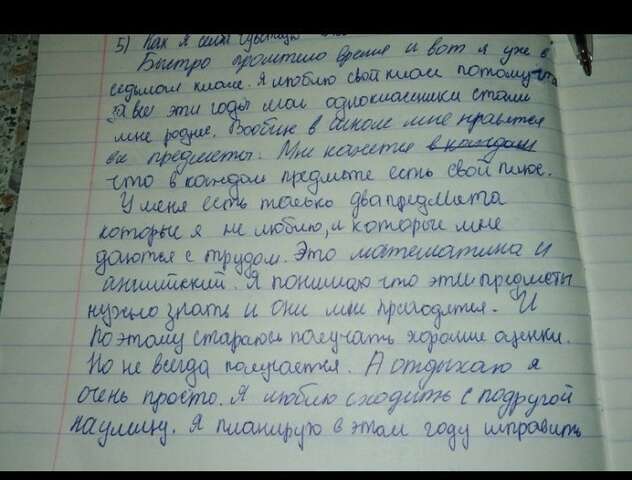 5) Как я
Быстро пролетело время и вот я уже в
седьмом класе. Я люблю свой класс потому что
за все эти годы мои одноклассники стали
мне родние. Вообще в школе мне нравятся
все предметы. Мне кажется в каждом
что в каждом предмете есть свой плюс.
У меня есть только два предмета
которые я не люблю, и которые мне
даются с трудом. Это математика и
английский. Я понимаю что эти предметы
нужно знать и они мне пригодятся. И
поэтому стараюсь получать хорошие оценки.
Но не всегда получается. А отдыхаю я
очень просто. Я люблю сходить с подругой
на улицу. Я планирую в этом году исправить